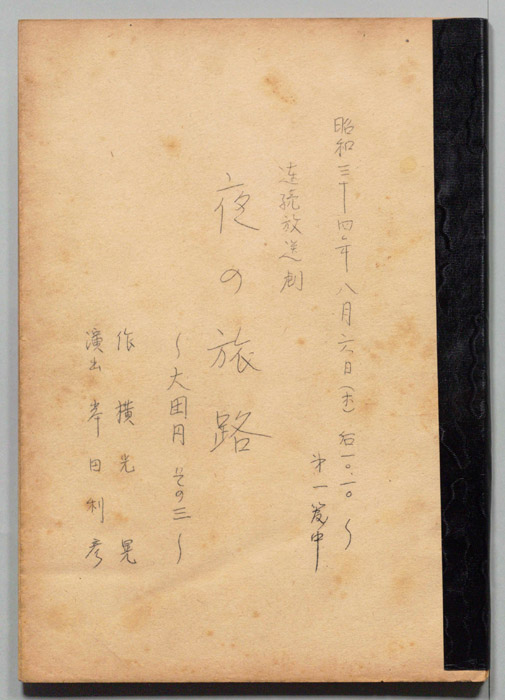 昭和三十四年八月六日(木) 后一〇.一〇～
第一発中
連続放送劇
夜の旅路
～大団円 その三～
作 横光晃
演出 岸田利彦